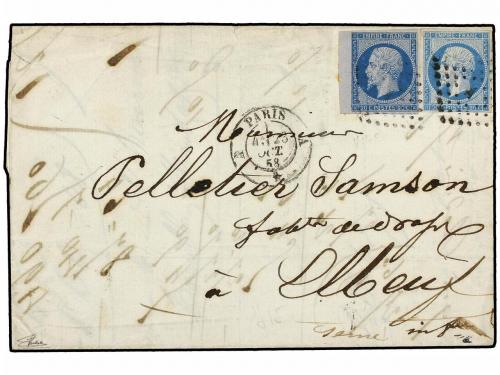 EMPIRE FRANC. EMPIRE FRANC.
20 C. POSTES 20 C.
PARIS
OCT
58
Monsieur
Pelletier Samson
fabt. de draps
à Elbeuf
Seine infre